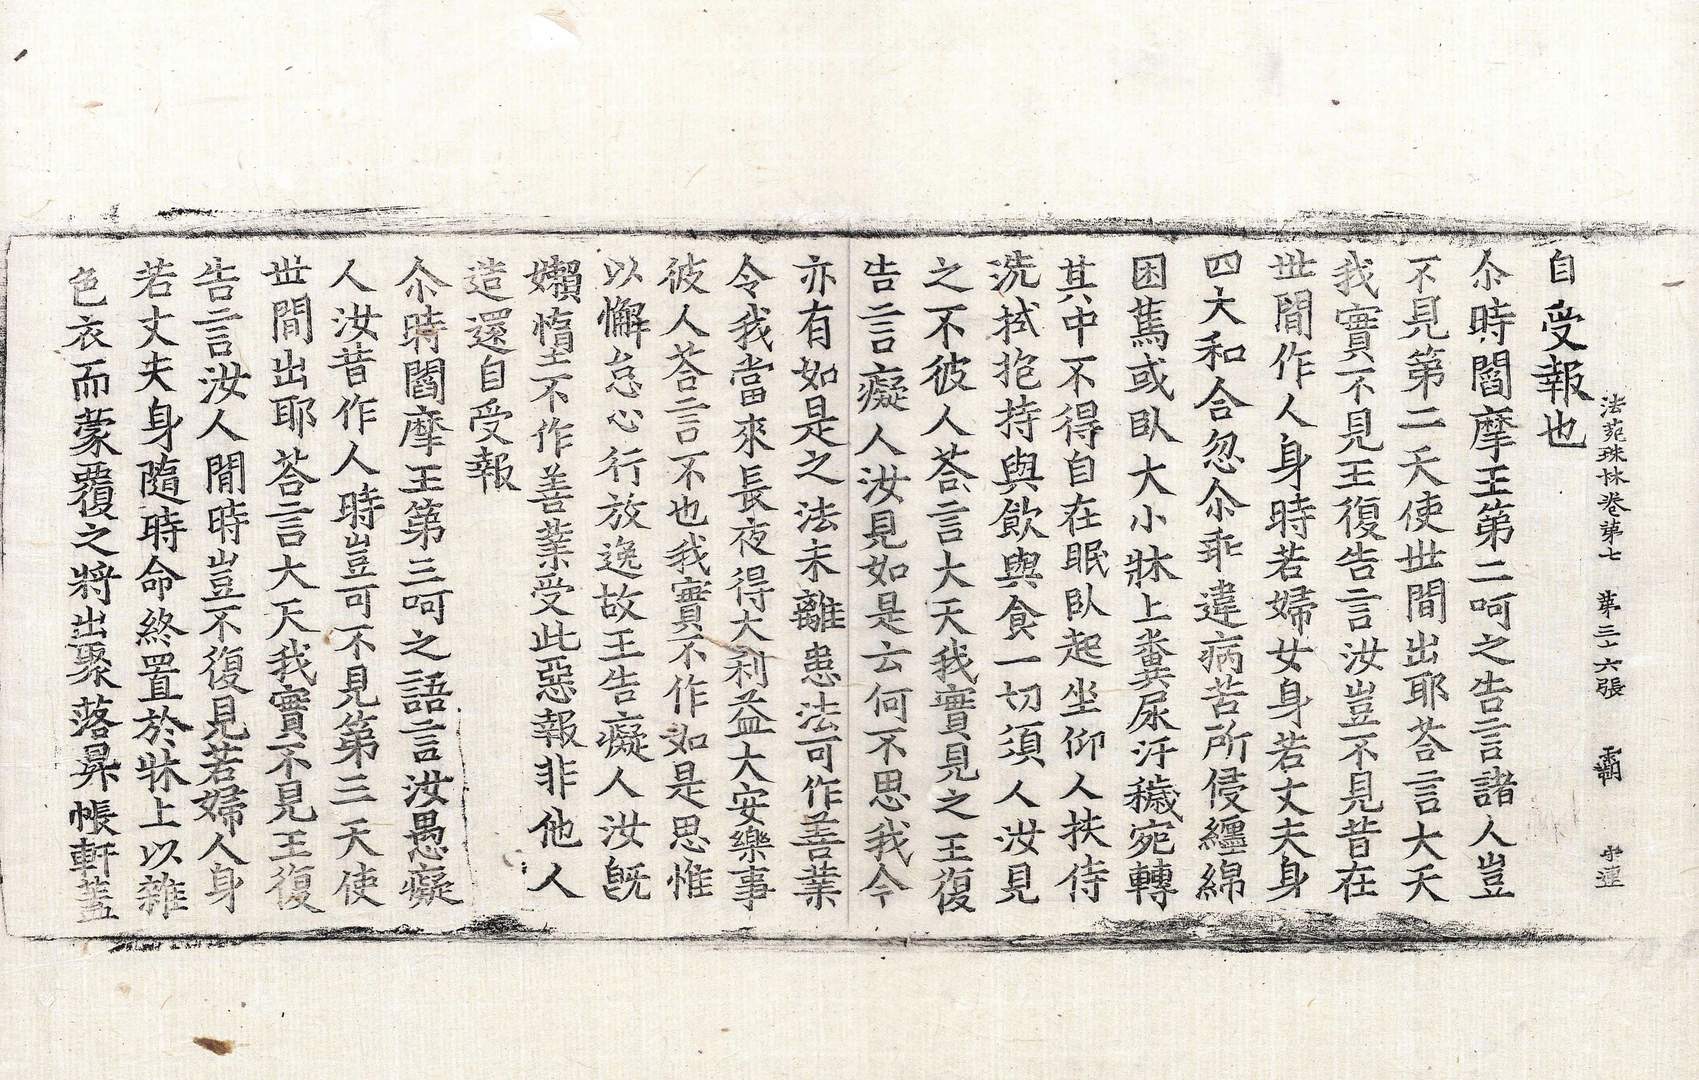 法苑珠林卷第七 第三六張 覇 守連
自受報也
尒時閻摩王第二呵之告言諸人豈
不見第二天使世間出耶荅言大天
我實不見王復告言汝豈不見昔在
世間作人身時若婦女身若丈夫身
四大和合忽尒乖違病苦所侵纏綿
困篤或臥大小牀上糞尿汙穢宛轉
其中不得自在眠臥起坐仰人扶侍
洗拭抱持與飲與食一切須人汝見
之不彼人荅言大天我實見之王復
告言癡人汝見如是云何不思我今
亦有如是之法未離患法可作善業
令我當來長夜得大利益大安樂事
彼人荅言不也我實不作如是思惟
以懈怠心行放逸故王告癡人汝旣
嬾惰不作善業受此惡報非他人
造還自受報
尒時閻摩王第三呵之語言汝愚癡
人汝昔作人時豈可不見第三天使
世間出耶荅言大天我實不見王復
告言汝人間時豈不復見若婦人身
若丈夫身隨時命終置於牀上以雜
色衣而蒙覆之將出聚落昇帳軒蓋